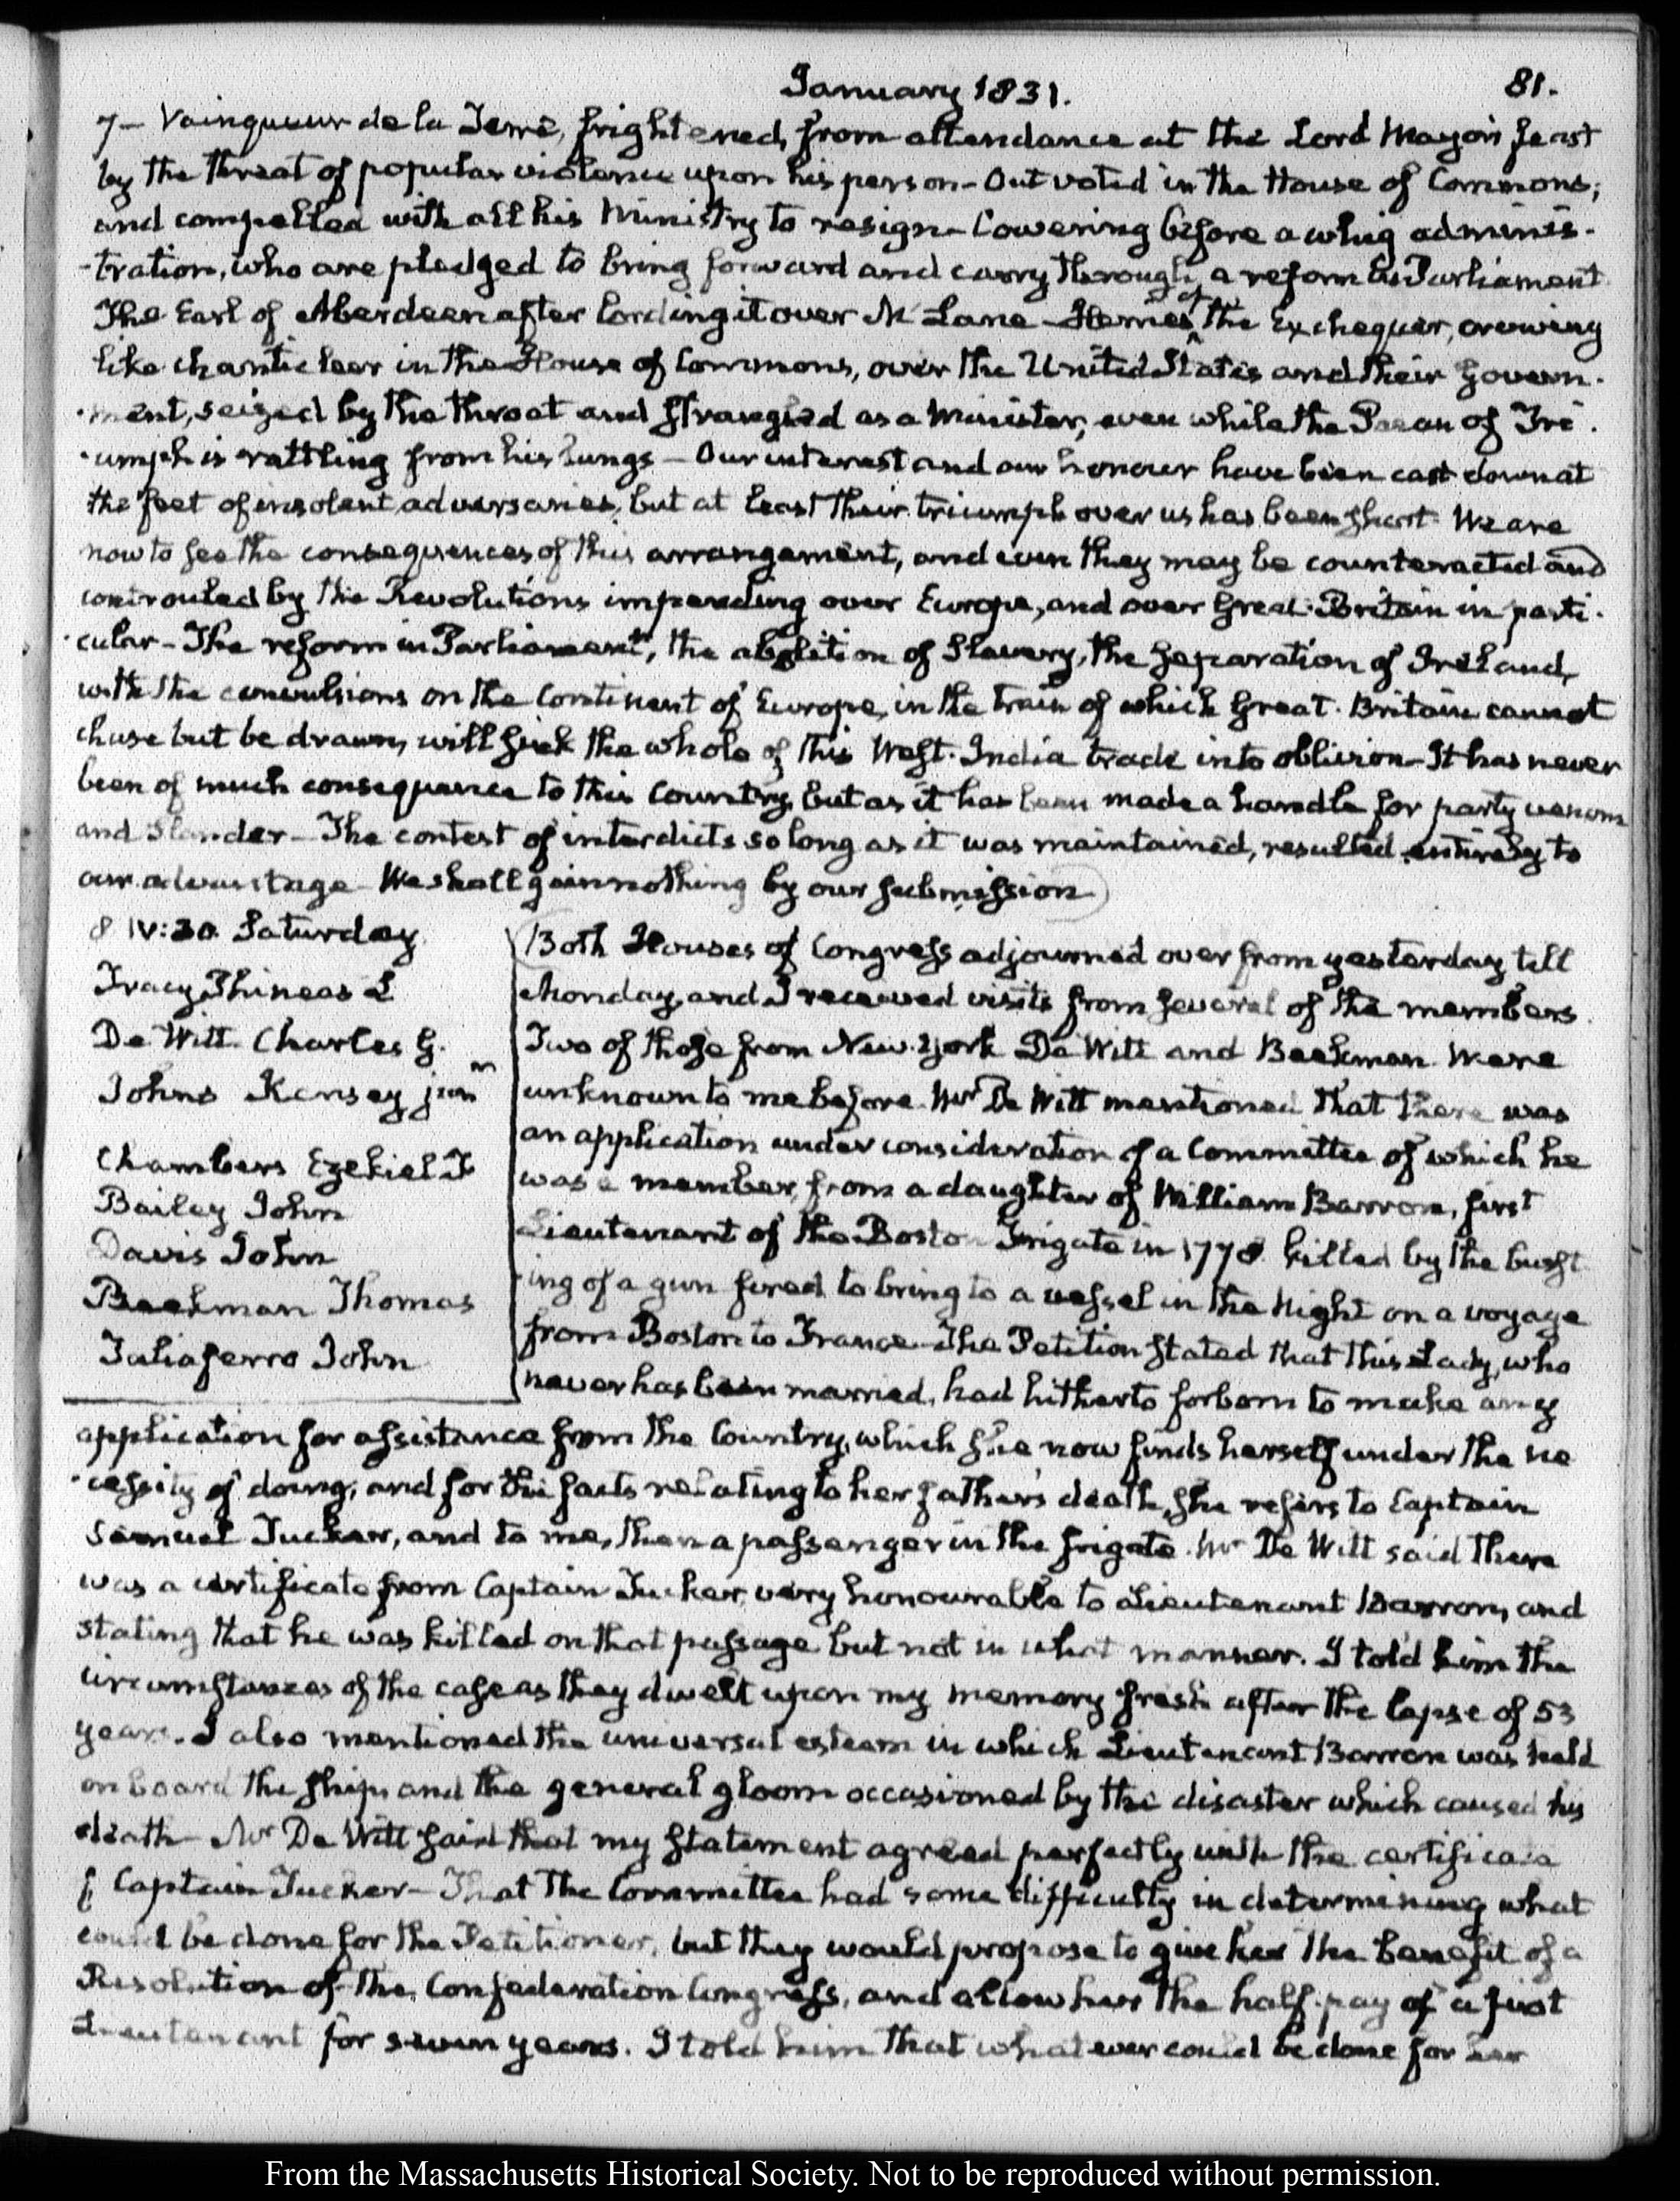 January 1831.
81.
7 – Vainqueur de la Terre, frightened from attendance at the Lord Mayor's feast
by the threat of popular violence upon his person – Out voted in the House of Commons;
and compelled with all his Ministry to resign – Cowering before a whig adminis-
-tration, who are pledged to bring forward and carry through a reform in Parliament
The Earl of Aberdeen after lording it over McLane – Herries of the Exchequer, crowing
like chanticleer in the House of Commons, over the United States and their Govern-
-ment, seized by the throat and strangled as a Minister, even while the Paean of Tri-
-umph is rattling from his lungs – Our interest and our honour have been cast down at
the feet of insolent adversaries, but at least their triumph over us has been short. We are
now to see the consequences of this arrangement, and even they may be counteracted and
controuled by the Revolutions impending over Europe, and over Great-Britain in parti-
-cular – The reform in Parliament, the abolition of Slavery, the separation of Ireland,
with the convulsions on the Continent of Europe, in the train of which Great-Britain cannot
chuse but be drawn, will sink the whole of this West-India trade into oblivion – It has never
been of much consequence to this Country, but as it has been made a handle for party venom
and Slander – The contest of interdicts so long as it was maintained, resulted entirely to
our advantage – We shall gain nothing by our submission
8. IV:30. Saturday
Tracy Phineas L
De Witt. Charles G.
Johns Kensey junr
Chambers Ezekiel F
Bailey John
Davis John
Beekman Thomas
Taliaferro John
Both Houses of Congress adjourned over from yesterday till
Monday, and I received visits from several of the members
Two of those from New-York De Witt and Beekman were
unknown to me before. Mr De Witt mentioned that there was
an application under consideration of a Committee of which he
was a member, from a daughter of William Barron, first
Lieutenant of the Boston Frigate in 1778. killed by the burst-
-ing of a gun fired to bring to a vessel in the Night on a voyage
from Boston to France – The Petition stated that this Lady, who
never has been married, had hitherto forborn to make any
application for assistance from the Country, which she now finds herself under the ne
-cessity of doing, and for the facts relating to her father's death, she refers to Captain
Samuel Tucker, and to me, then a passenger in the frigate. Mr De Witt said there
was a certificate from Captain Tucker very honourable to Lieutenant Barron, and
stating that he was killed on that passage but not in what manner. I told him the
circumstances of the case as they dwelt upon my memory fresh after the lapse of 53
years. I also mentioned the universal esteem in which Lieutenant Barron was held
on board the ship, and the general gloom occasioned by the disaster which caused his
death – Mr De Witt said that my statement agreed perfectly with the certificate
of Captain Tucker – That the Committee had some difficulty in determining what
could be done for the Petitioner, but they would propose to give her the benefit of a
Resolution of the Confederation Congress, and allow her the half-pay of a first
Lieutenant for seven years. I told him that whatever could be done for her
From the Massachusetts Historical Society. Not to be reproduced without permission.